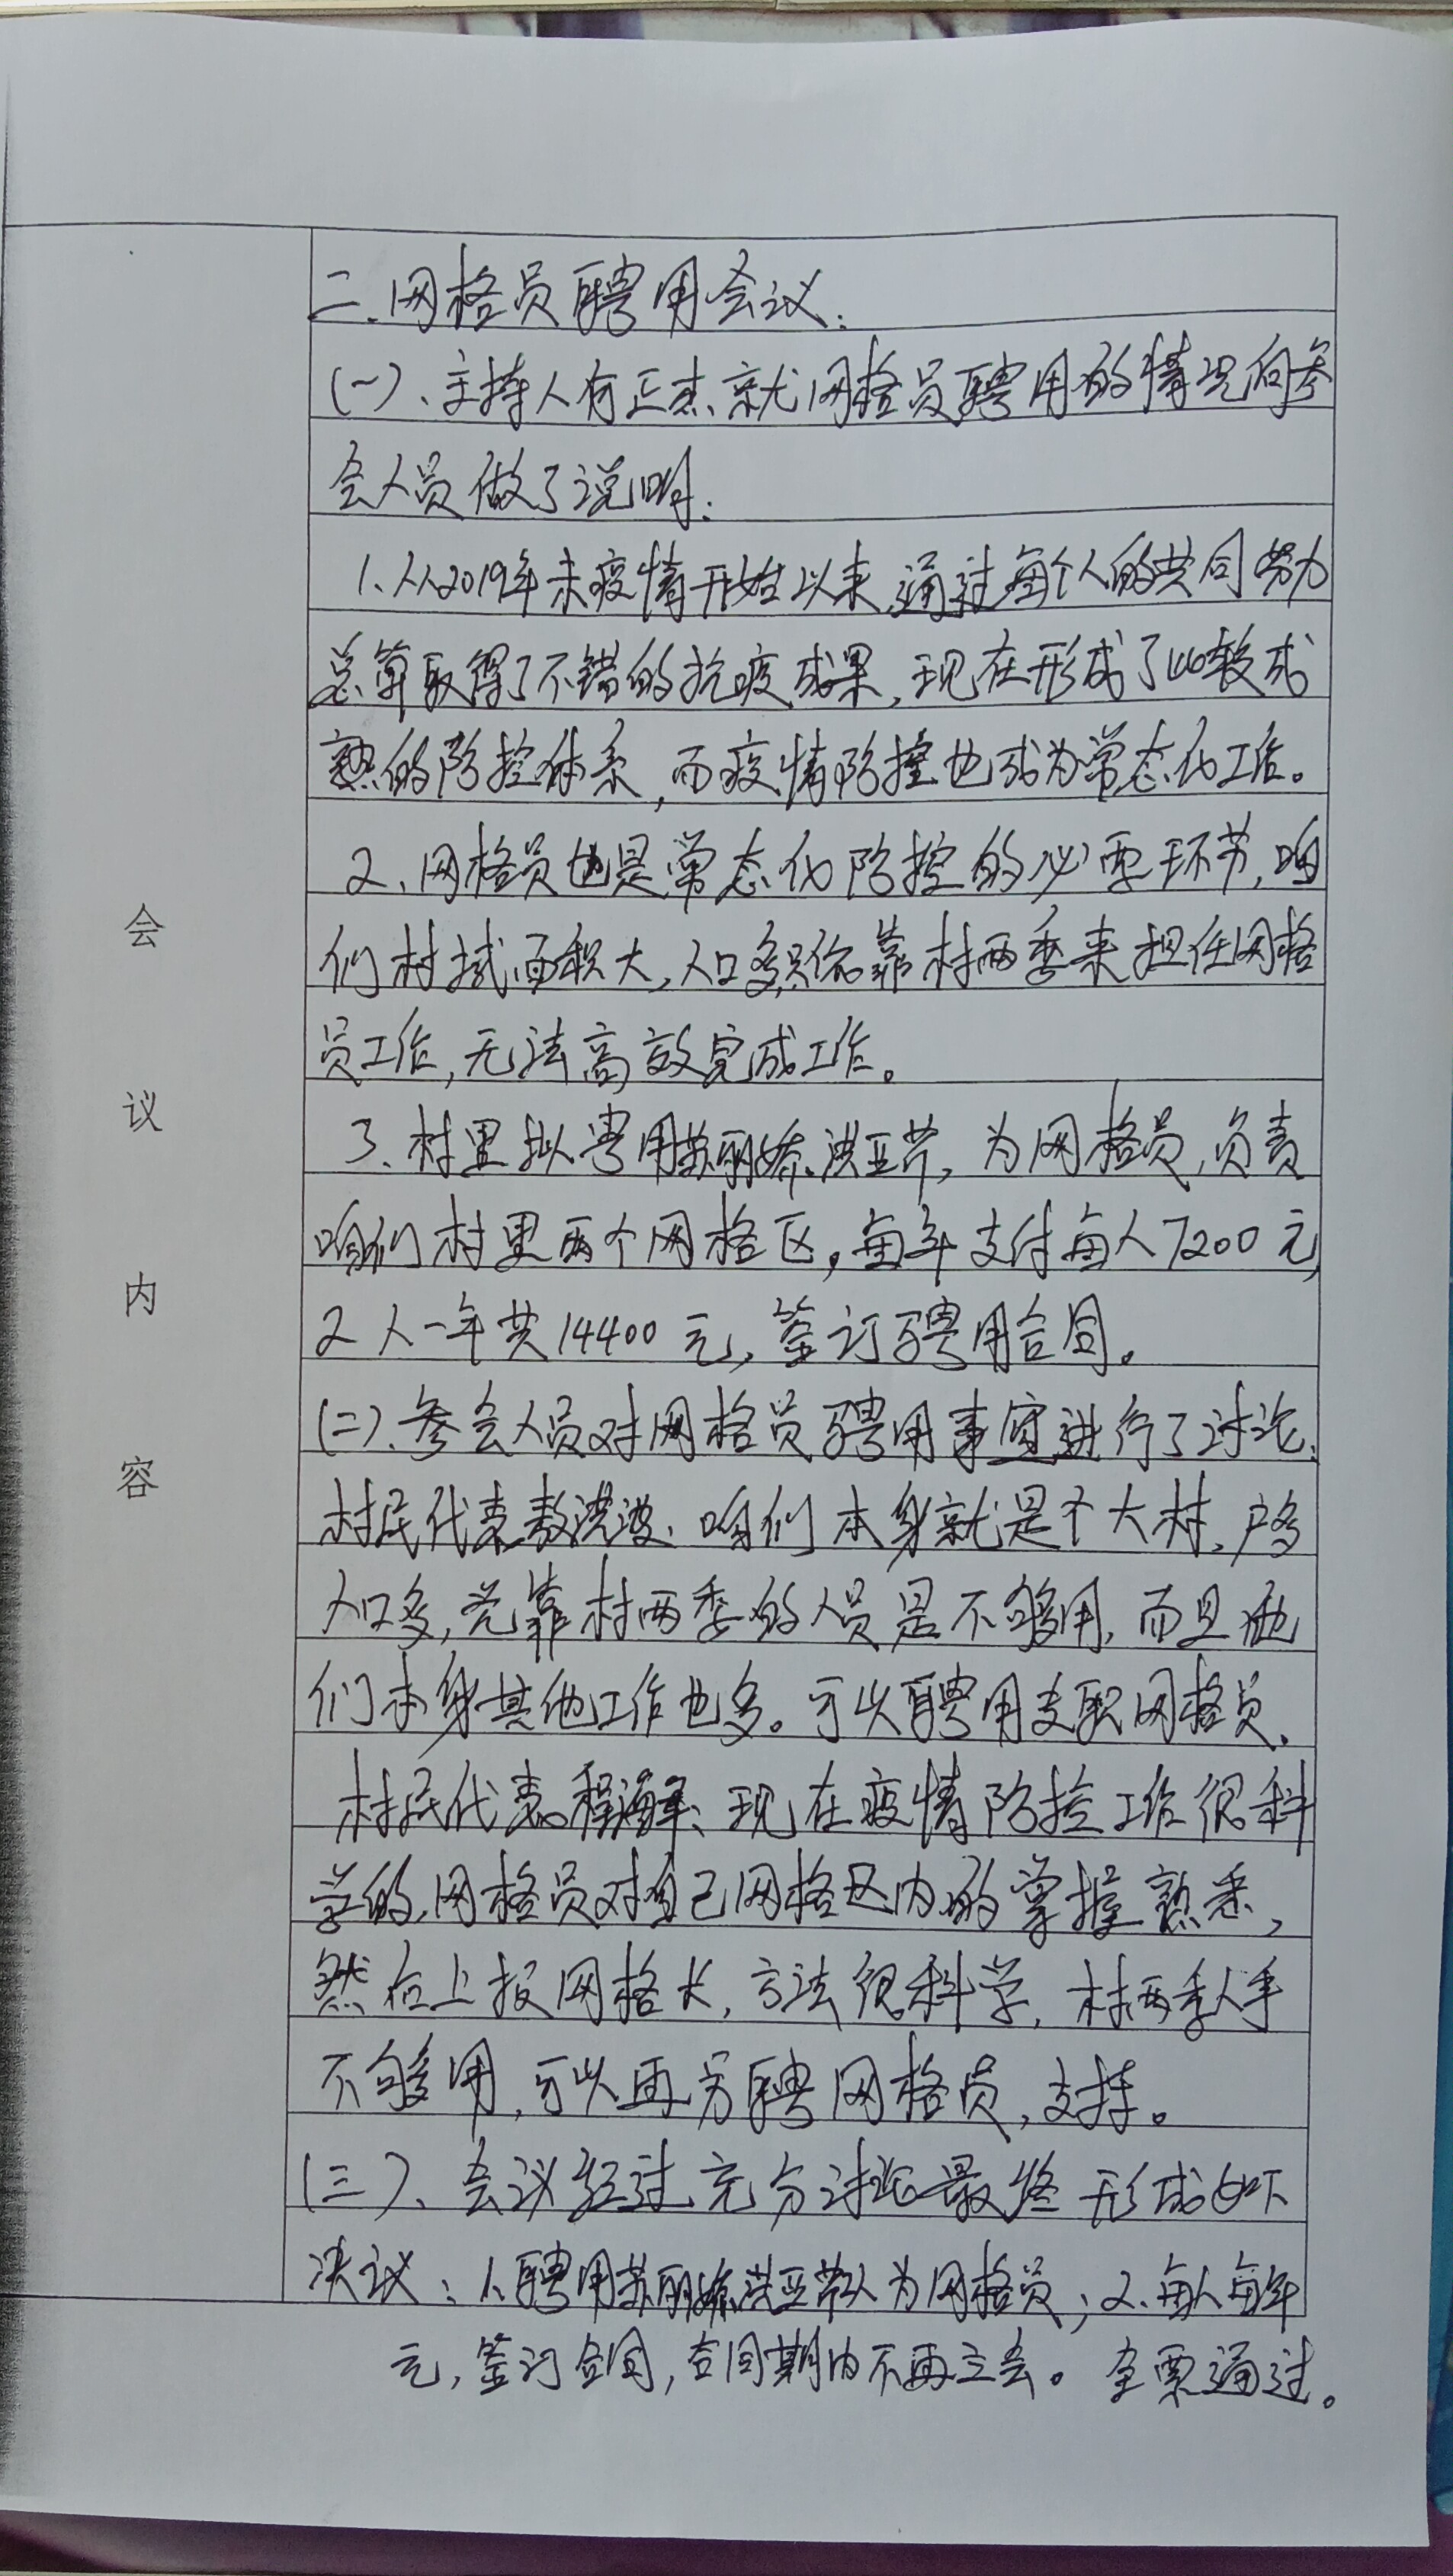 会议内容
二.网格员聘用会议:
(一)、主持人有正杰就网格员聘用的情况向参
会人员做了说明:
1、从2019年末疫情开始以来,通过每个人的共同努力
总算取得了不错的抗疫成果,现在形成了比较成
熟的防控体系,而疫情防控也成为常态化工作。
2、网格员也是常态化防控的必要环节,咱
们村域面积大,人口多,只依靠村两委来担任网格
员工作,无法高效完成工作。
3、村里拟聘用苏丽娇、洪亚芹,为网格员,负责
咱们村里两个网格区,每年支付每人7200元,
2人一年共14400元,签订聘用合同。
(二)、参会人员对网格员聘用事宜进行了讨论:
村民代表敖洪波、咱们本身就是个大村,户多
人口多,光靠村两委的人员是不够用,而且他
们本身其他工作也多。可以聘用专职网格员、
村民代表程海军、现在疫情防控工作很科
学的,网格员对自己网格区内的掌握熟悉,
然后上报网格长,方法很科学,村两委人手
不够用,可以再另聘网格员,支持。
(三)、会议经过充分讨论最终形成如下
决议:1、聘用苏丽娇、洪亚芹2人为网格员;2、每人每年
元,签订合同,合同期内不再立会。全票通过。